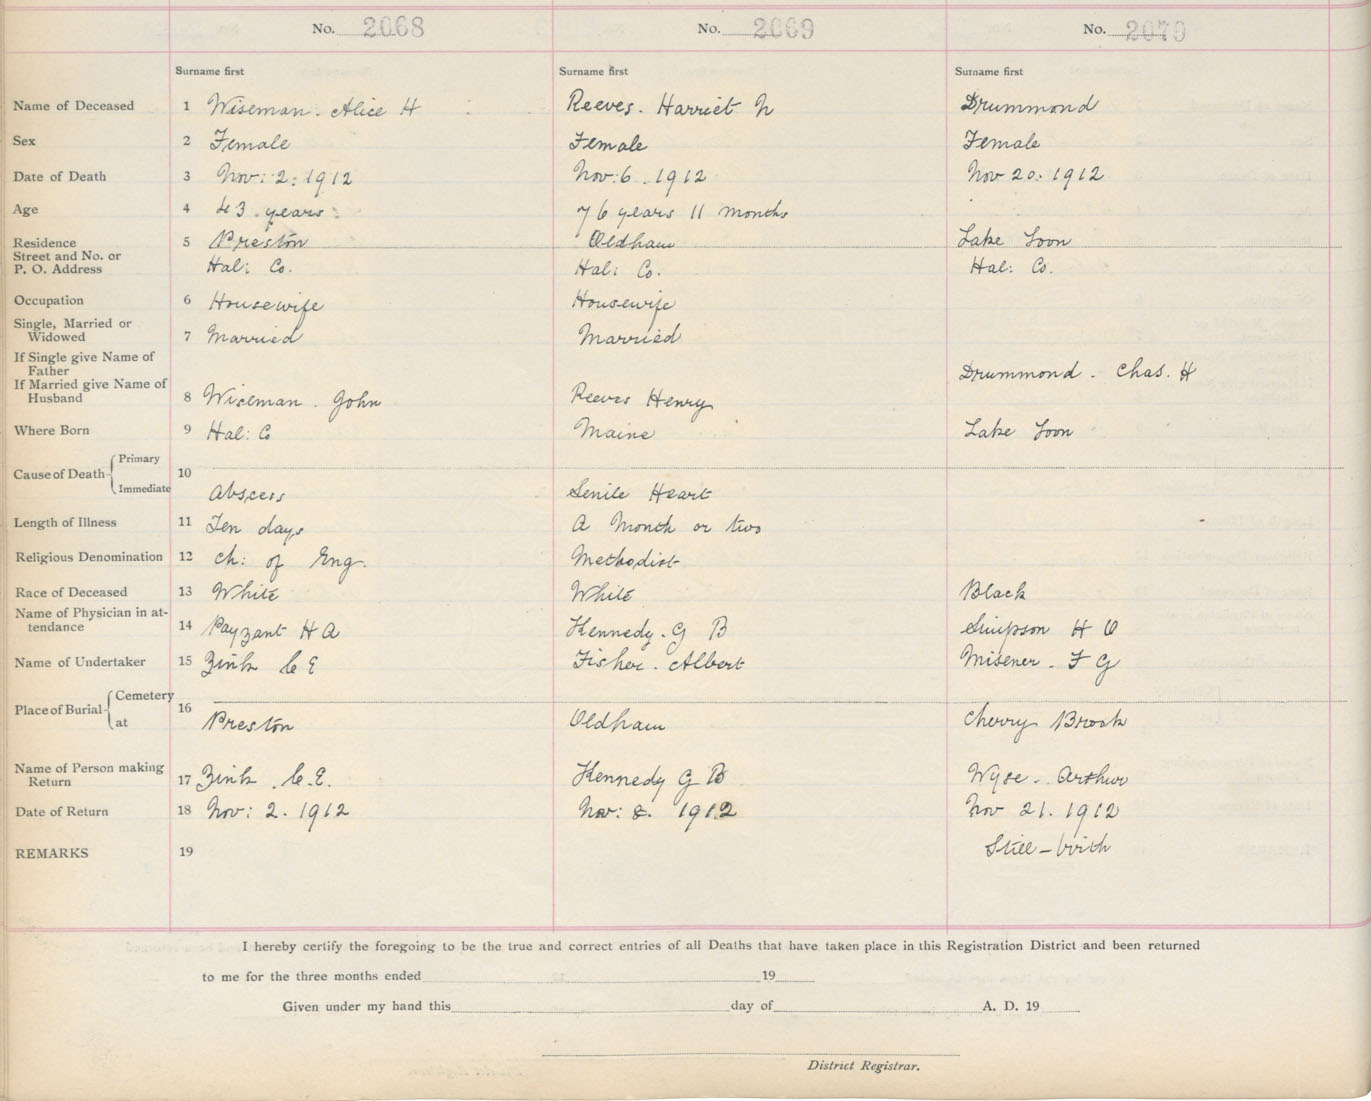 No. 2068 No. 2069 No. 2070
Surname first Surname first Surname first
Name of Deceased 1 Wiseman. Alice H Reeves. Harriet N Drummond
Sex 2 Female Female Female
Date of Death 3 Nov: 2: 1912 Nov: 6. 1912 Nov 20. 1912
Age 4 43 years 76 years 11 months
Residence 5 Preston Oldham Lake Loon
Street and No. or
P. O. Address Hal: Co. Hal: Co. Hal: Co.
Occupation 6 Housewife Housewife
Single, Married or
Widowed 7 Married Married
If Single give Name of
Father Drummond. Chas. H
If Married give Name of
Husband 8 Wiseman. John Reeves Henry
Where Born 9 Hal: Co Maine Lake Loon
Cause of Death Primary 10
Immediate Abscess Senile Heart
Length of Illness 11 Ten days A Month or two
Religious Denomination 12 Ch: of Eng. Methodist
Race of Deceased 13 White White Black
Name of Physician in at-
tendance 14 Payzant H A Kennedy. G B Simpson H O
Name of Undertaker 15 Zink C E Fisher. Albert Misener. F G
Place of Burial Cemetery 16
at Preston Oldham Cherry Brook
Name of Person making
Return 17 Zink. C. E. Kennedy G B Wyse. Arthur
Date of Return 18 Nov: 2. 1912 Nov: 8. 1912 Nov 21. 1912
REMARKS 19 Still-birth
I hereby certify the foregoing to be the true and correct entries of all Deaths that have taken place in this Registration District and been returned
to me for the three months ended 19
Given under my hand this day of A. D. 19
District Registrar.